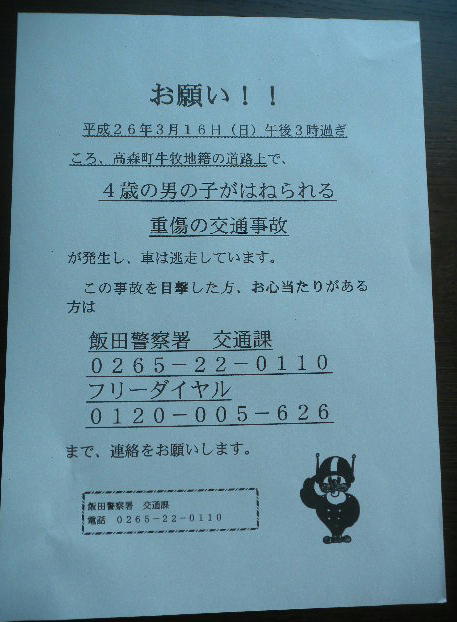 お願い！！
平成２６年３月１６日（日）午後３時過ぎ
ころ、高森町牛牧地籍の道路上で、
４歳の男の子がはねられる
重傷の交通事故
が発生し、車は逃走しています。
この事故を目撃した方、お心当たりがある
方は
飯田警察署　交通課
０２６５－２２－０１１０
フリーダイヤル
０１２０－００５－６２６
まで、連絡をお願いします。
飯田警察署　交通課
電話　０２６５－２２－０１１０